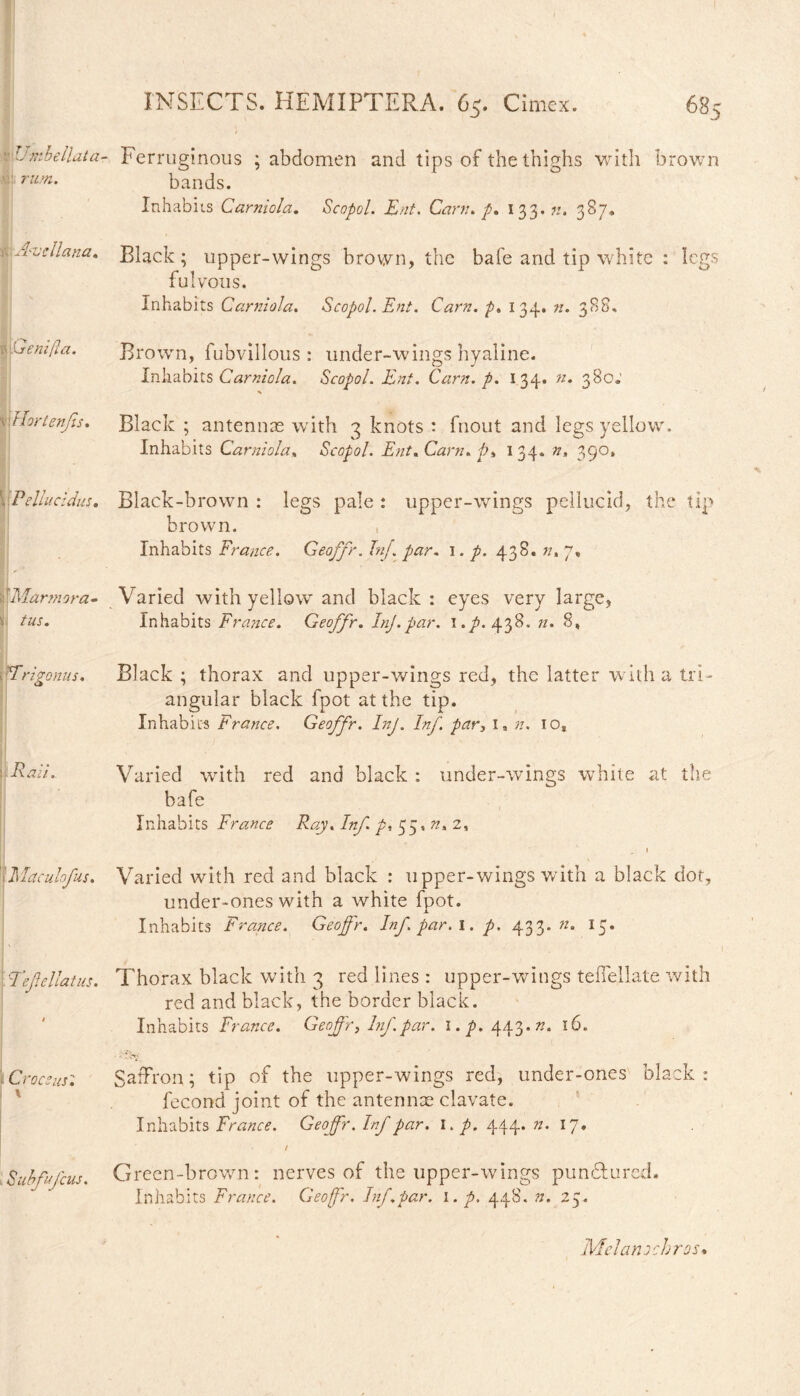 INSECTS. HEMIPTERA. 65. Cimex. 685
Umbellata- Ferruginous ; abdomen and tips of the thighs with brown
rum. bands.
Inhabits Carniola. Scopol. Ent. Carn. p. 133. n. 387.
Avellana. Black ; upper-wings brown, the baſe and tip white : legs
fulvous.
Inhabits Carniola. Scopol. Ent. Carn. p. 134. n. 388.
Geniſta. Brown, ſubvillous : under-wings hyaline.
Inhabits Carniola. Scopol. Ent. Carn. p. 134. n. 380.
Hortenſis. Black ; antennæ with 3 knots : ſnout and legs yellow.
Inhabits Carniola. Scopol. Ent. Carn. p. 134. n. 390.
Pellucidus. Black-brown : legs pale : upper-wings pellucid, the tip
brown.
Inhabits France. Geoffr. Inſ. par. 1. p. 438. n. 7.
Marmora- Varied with yellow and black : eyes very large,
tus. Inhabits France. Geoffr. Inſ. par. 1. p. 438. n. 8.
Trigonus. Black ; thorax and upper-wings red, the latter with a tri-
angular black ſpot at the tip.
Inhabits France. Geoffr. Inſ. Inſ. par, 1, n. 10.
Raii. Varied with red and black : under-wings white at the
baſe
Inhabits France Ray. Inſ. p. 55. n. 2.
Maculoſus. Varied with red and black : upper-wings with a black dot,
under-ones with a white ſpot.
Inhabits France. Geoffr. Inſ. par. 1. p. 433. n. 15.
Teſſellatus. Thorax black with 3 red lines : upper-wings teſſellate with
red and black, the border black.
Inhabits France. Geoffr, Inſ. par. 1. p. 443. n. 16.
Croceus: Saffron ; tip of the upper-wings red, under-ones black :
ſecond joint of the antennæ clavate.
Inhabits France. Geoffr. Inſ par. 1. p. 444. n. 17.
Subfuſcus. Green-brown : nerves of the upper-wings punctured.
Inhabits France. Geoffr. Inſ. par. 1. p. 448. n. 25.
Melanochros.